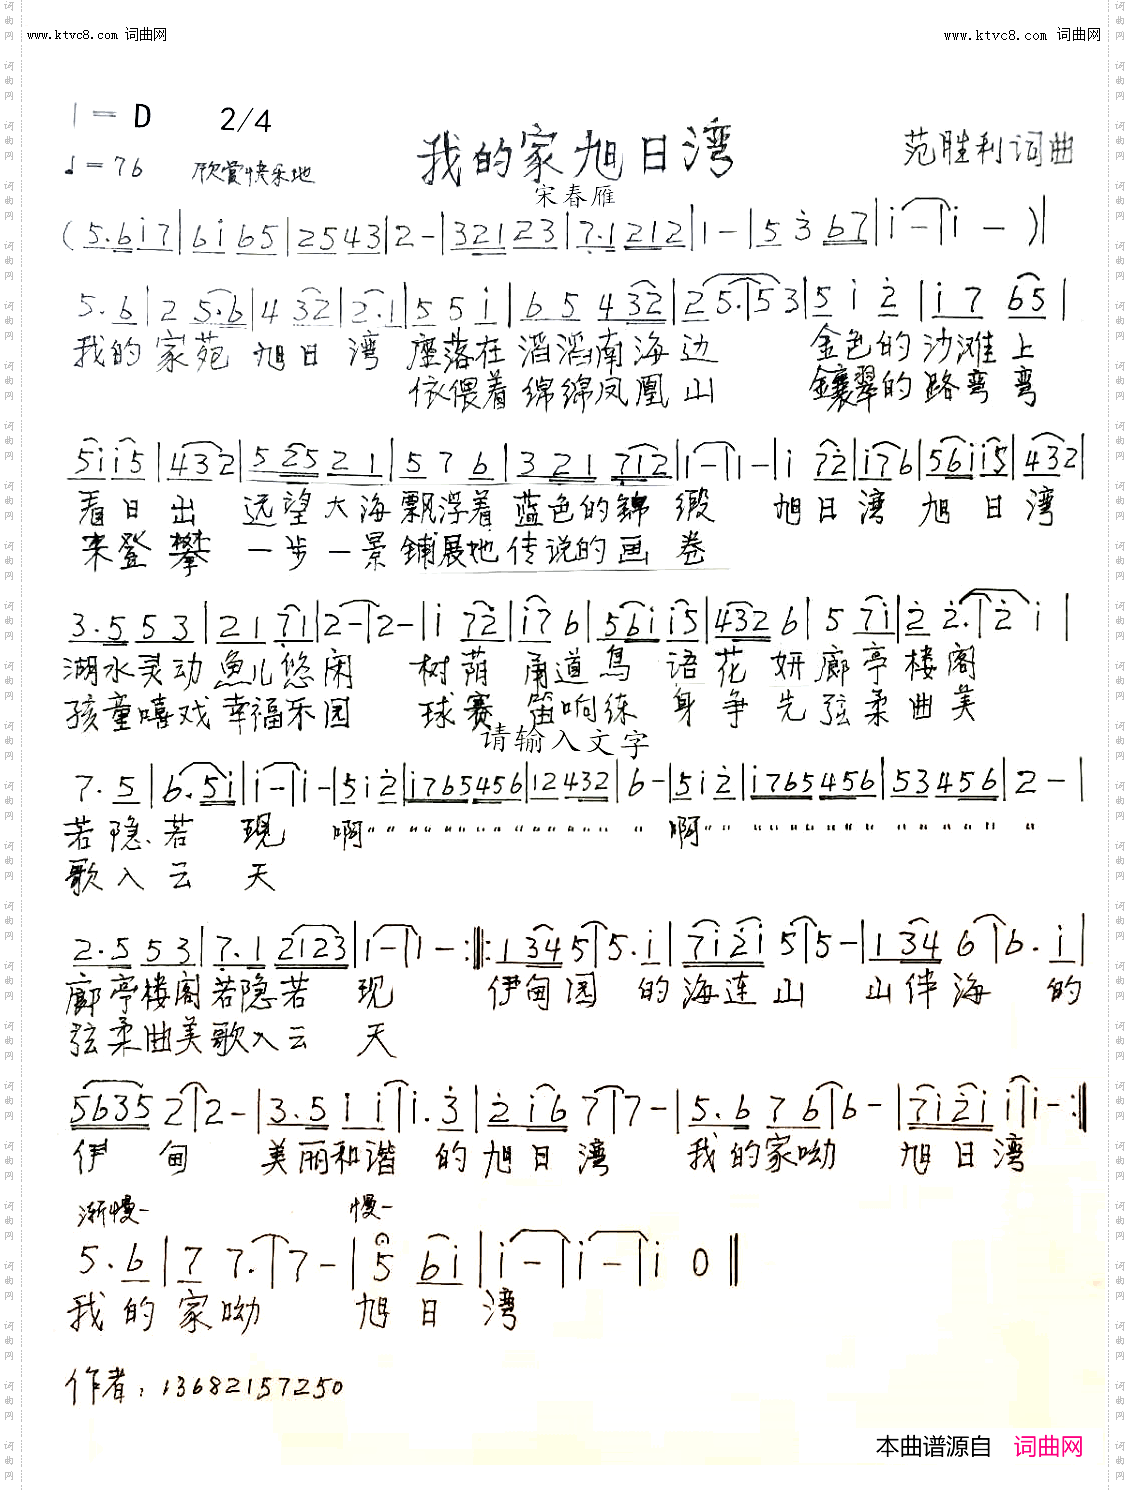 www.ktvc8.com 词曲网 www.ktvc8.com 词曲网
1=D 2/4
♩=76 欣赏快乐地 我的家旭日湾 范胜利词曲
宋春雁
(5.6 i 7|6 i 6 5|2 5 4 3|2 -|3 2 1 2 3|7.1 2 1 2|1 -|5 3 6 7|i -|i -)|
5.6|2 5.6|4 3 2|2.1|5 5 i|6 5 4 3 2|2 5.|5 3|5 i 2|i 7 6 5|
我的 家苑 旭日 湾 座落在 滔滔南海边 金色的 沙滩上
依偎着 绵绵凤凰山 镶翠的 路弯弯
5 i i 5|4 3 2|5 2 5 2 1|5 7 6|3 2 1 7 i 2|1 -|1 -|i 7 2|i 7 6|5 6 i i 5|4 3 2|
看日出 远望大海 飘浮着 蓝色的锦缎 旭日湾 旭日湾
来登攀 一步一景 铺展地 传说的画卷
3.5 5 3|2 1 7 1|2 -|2 -|i 7 2|i 7 6|5 6 i i 5|4 3 2 6|5 7 i|2 2.|2 i|
湖水灵动 鱼儿悠闲 树荫 甬道鸟 语花妍 廊亭楼阁
孩童嘻戏 幸福乐园 球赛 笛响练 身争先 弦柔曲美
请输入文字
7.5|6.5 i|i -|i -|5 i 2|i 7 6 5 4 5 6|1 2 4 3 2|6 -|5 i 2|i 7 6 5 4 5 6|5 3 4 5 6|2 -|
若隐若 现 啊 〃〃〃〃〃〃〃〃〃〃〃〃〃〃 啊 〃〃〃〃〃〃〃〃〃〃〃〃〃〃〃〃
歌入云 天
2.5 5 3|7.1 2 1 2 3|1 -|1 -:‖:1 3 4 5|5.i|7 i 2 i 5|5 -|1 3 4 6|6.i|
廊亭楼阁 若隐若 现 伊甸园 的海连山 山伴海 的
弦柔曲美 歌入云 天
5 6 3 5 2|2 -|3.5 i i|i.3|2 i 6 7|7 -|5.6 7 6|6 -|7 i 2 i i|i -:‖
伊 甸 美丽和谐 的旭日湾 我的家呦 旭日湾
渐慢- 慢-
5.6|7 7.|7 -|5 6 i|i -|i -|i 0‖
我的 家呦 旭日 湾
作者：13682157250
本曲谱源自 词曲网